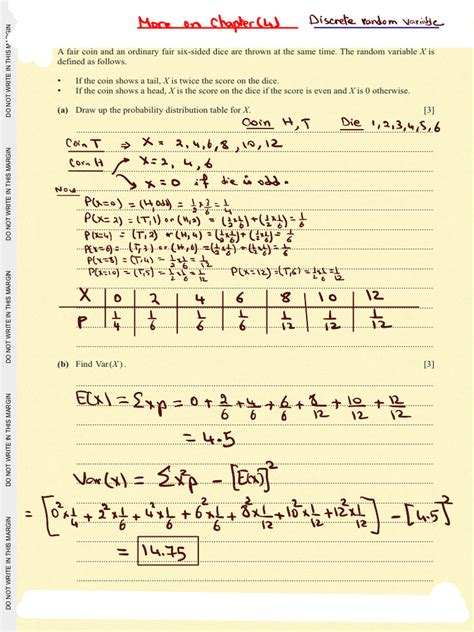 More on Chapter (4) Discrete random variable
A fair coin and an ordinary fair six-sided dice are thrown at the same time. The random variable X is
defined as follows.
• If the coin shows a tail, X is twice the score on the dice.
• If the coin shows a head, X is the score on the dice if the score is even and X is 0 otherwise.
(a) Draw up the probability distribution table for X. [3]
Coin H,T Die 1,2,3,4,5,6
Coin T ⇒ X = 2,4,6,8,10,12
Coin H → X = 2, 4, 6
→ X = 0 if die is odd.
Now
P(X=0) = (H,odd) = 1/2 × 3/6 = 1/4
P(X=2) = (T,1) or (H,2) = (1/2×1/6) + (1/2×1/6) = 1/6
P(X=4) = (T,2) or (H,4) = (1/2×1/6) + (1/2×1/6) = 1/6
P(X=6) = (T,3) or (H,6) = (1/2×1/6) + (1/2×1/6) = 1/6
P(X=8) = (T,4) = 1/2×1/6 = 1/12
P(X=10) = (T,5) = 1/2×1/6 = 1/12 P(X=12) = (T,6) = 1/2×1/6 = 1/12
X 0 2 4 6 8 10 12
P 1/4 1/6 1/6 1/6 1/12 1/12 1/12
(b) Find Var(X). [3]
E(X) = Σxp = 0 + 2/6 + 4/6 + 6/6 + 8/12 + 10/12 + 12/12
= 4.5
Var(X) = Σx²p − [E(X)]²
= [0²×1/4 + 2²×1/6 + 4²×1/6 + 6²×1/6 + 8²×1/12 + 10²×1/12 + 12²×1/12] − [4.5]²
= 14.75
DO NOT WRITE IN THIS MARGIN
DO NOT WRITE IN THIS MARGIN
DO NOT WRITE IN THIS MARGIN
DO NOT WRITE IN THIS MARGIN
DO NOT WRITE IN THIS MARGIN